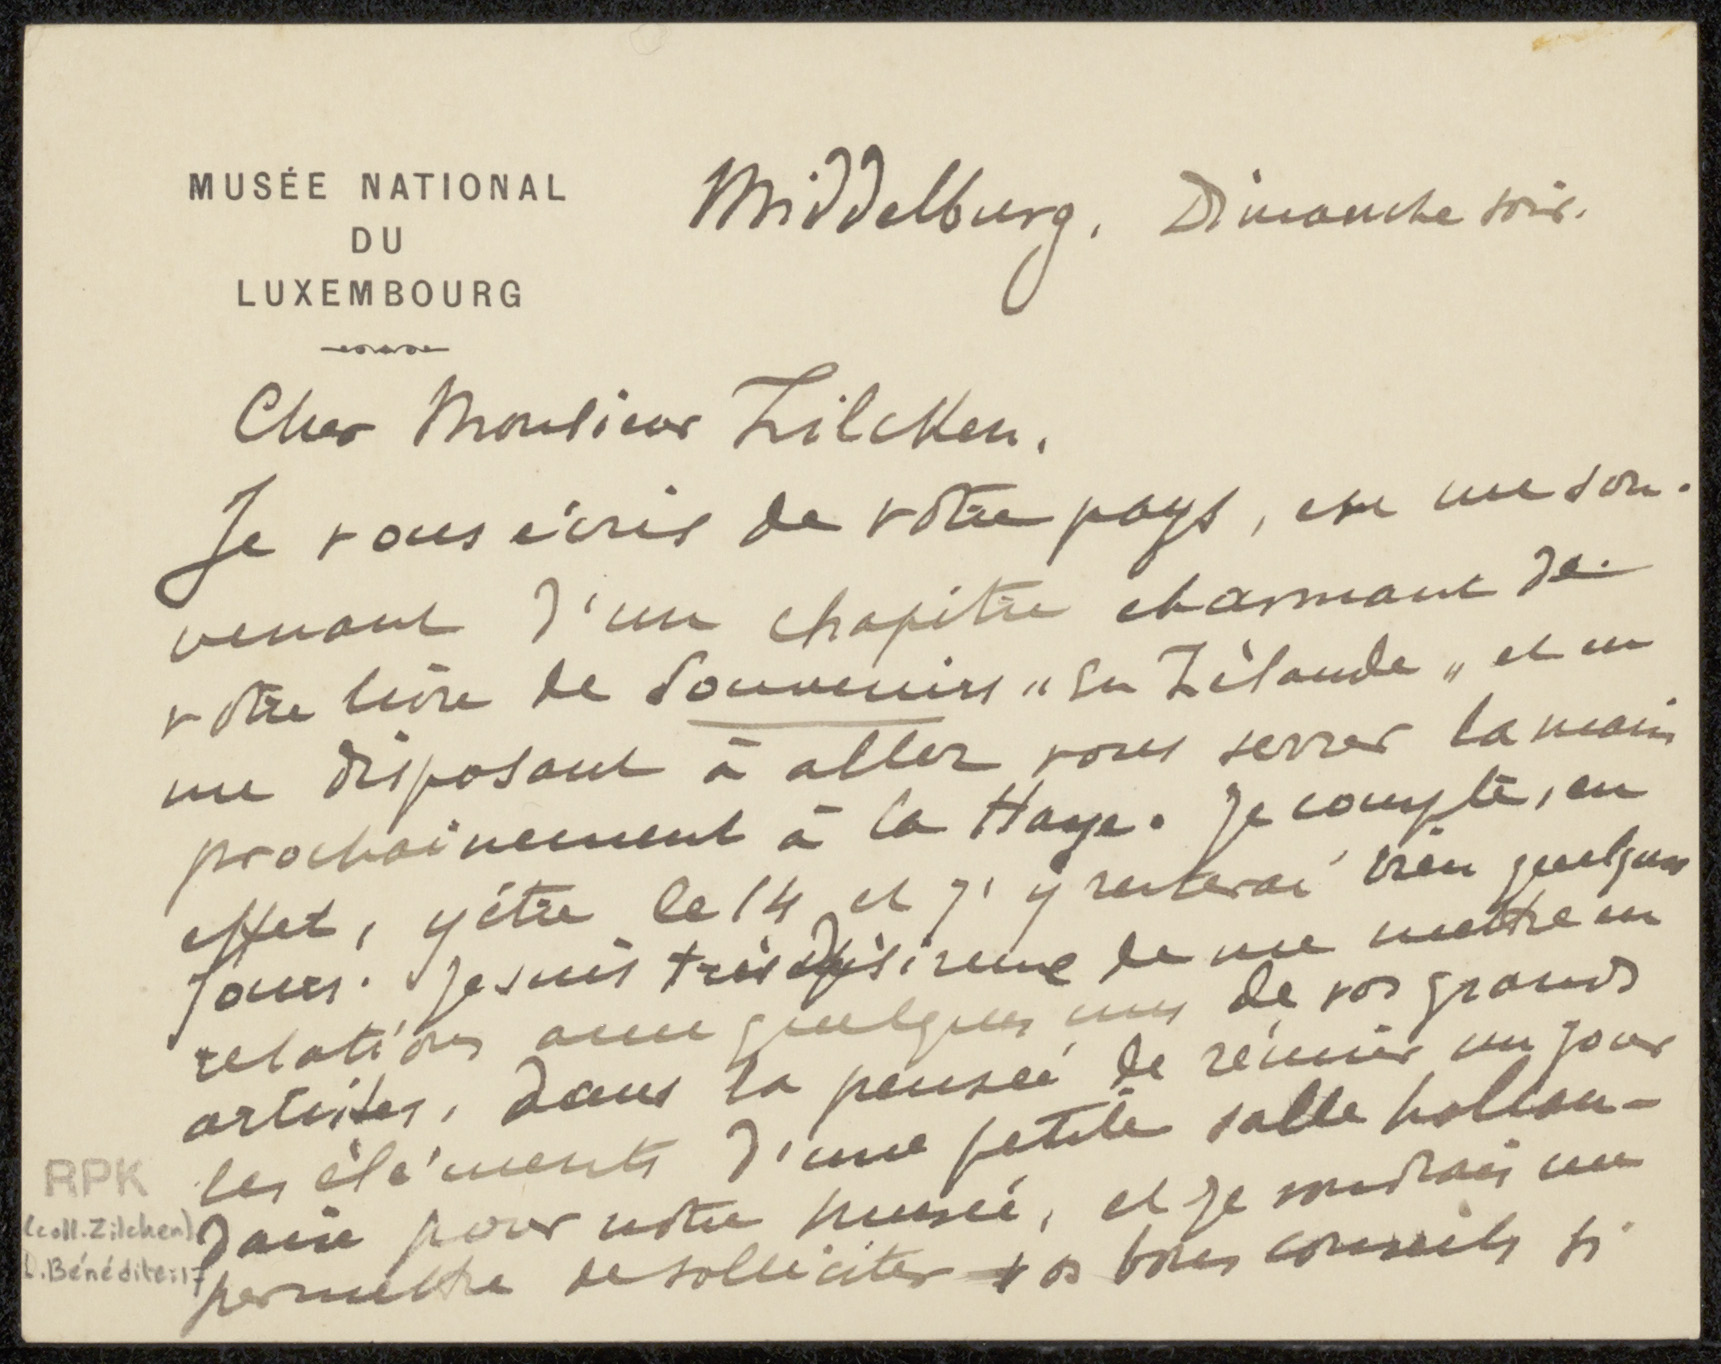 MUSÉE NATIONAL
DU
LUXEMBOURG
Middelburg. Dimanche soir.
Cher Monsieur Zilcken,
Je vous écris de votre pays, en me sou-
venant d'un chapitre charmant de
votre livre de Souvenirs "En Zélande" et en
me disposant à aller vous serrer la main
prochainement à la Haye. Je compte, en
effet, y être le 14 et j'y resterai bien quelques
jours. Je suis très désireux de me mettre en
relations avec quelques uns de vos grands
artistes, dans la pensée de réunir un jour
les éléments d'une petite salle hollan-
daise pour notre musée, et je voudrais me
permettre de solliciter vos bons conseils si
RPK
(coll. Zilcken)
D. Bénédite: 17